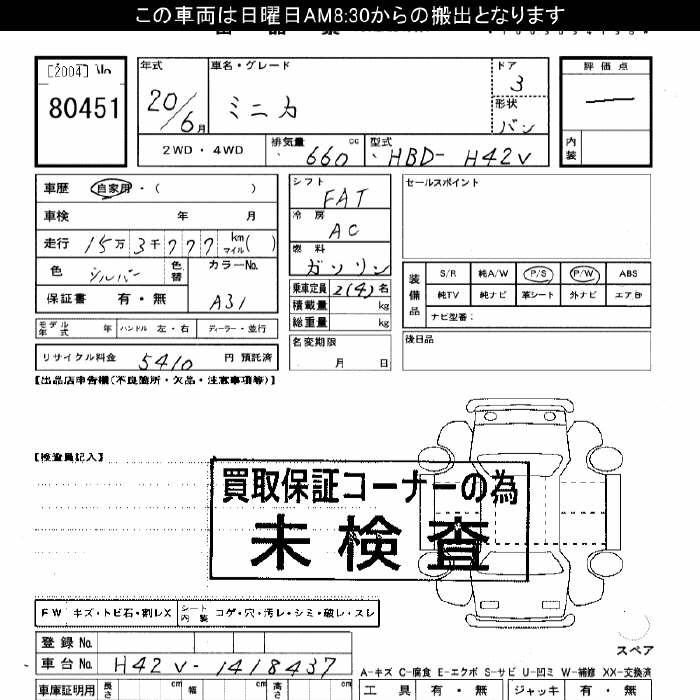 この車両は日曜日AM8:30からの搬出となります
[2004] No
80451
年式 車名・グレード ドア 評価点
20/6月 ミニカ 3
形状 バン
2WD・4WD 排気量 660 cc 型式 HBD- H42V
内装
車歴 自家用・( )
シフト FAT
セールスポイント
車検 年 月
冷房 AC
走行 15万3千777 km マイル( )
燃料 ガソリン
色 シルバー 色替 カラーNo. A31
装備品 S/R 純A/W P/S P/W ABS
保証書 有・無
乗車定員 2(4)名
純TV 純ナビ 革シート 外ナビ エアB
積載量 kg
ナビ型番:
モデル年式 年 ハンドル 左・右 ディーラー・並行
総重量 kg
後日品
リサイクル料金 5410 円 預託済
名変期限 月 日
【出品店申告欄(不良箇所・欠品・注意事項等)】
【検査員記入】
買取保証コーナーの為
未検査
FW キズ・トビ石・割レX シート内装 コゲ・穴・汚レ・シミ・破レ・スレ
登録No.
スペア
車台No. H42V-1418437
A-キズ C-腐食 E-エクボ S-サビ U-凹ミ W-補修 XX-交換済
車庫証明用 長さ cm 幅 cm 高さ cm
工具 有・無 ジャッキ 有・無